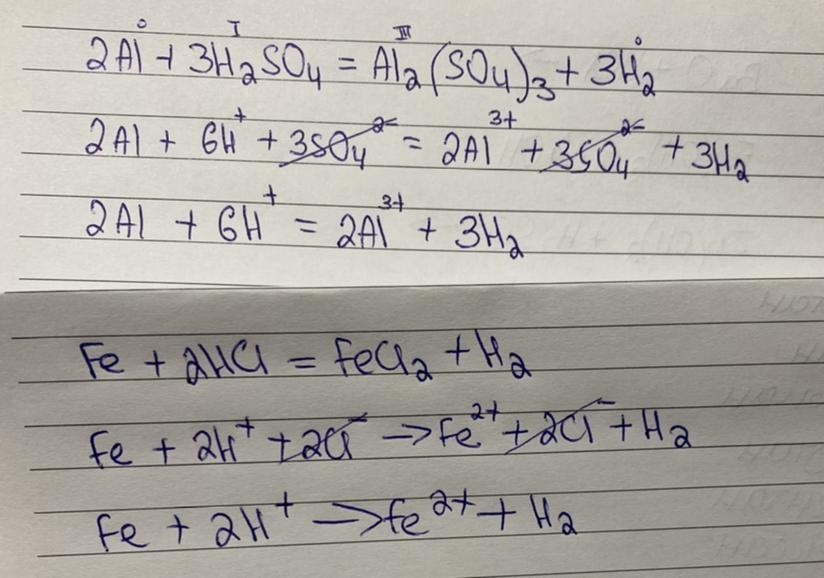 2Al⁰ + 3Hᴵ₂SO₄ = Alᴵᴵᴵ₂(SO₄)₃ + 3H⁰₂
2Al + 6H⁺ + 3SO₄²⁻ = 2Al³⁺ + 3SO₄²⁻ + 3H₂
2Al + 6H⁺ = 2Al³⁺ + 3H₂
Fe + 2HCl = FeCl₂ + H₂
Fe + 2H⁺ + 2Cl⁻ → Fe²⁺ + 2Cl⁻ + H₂
Fe + 2H⁺ → Fe²⁺ + H₂